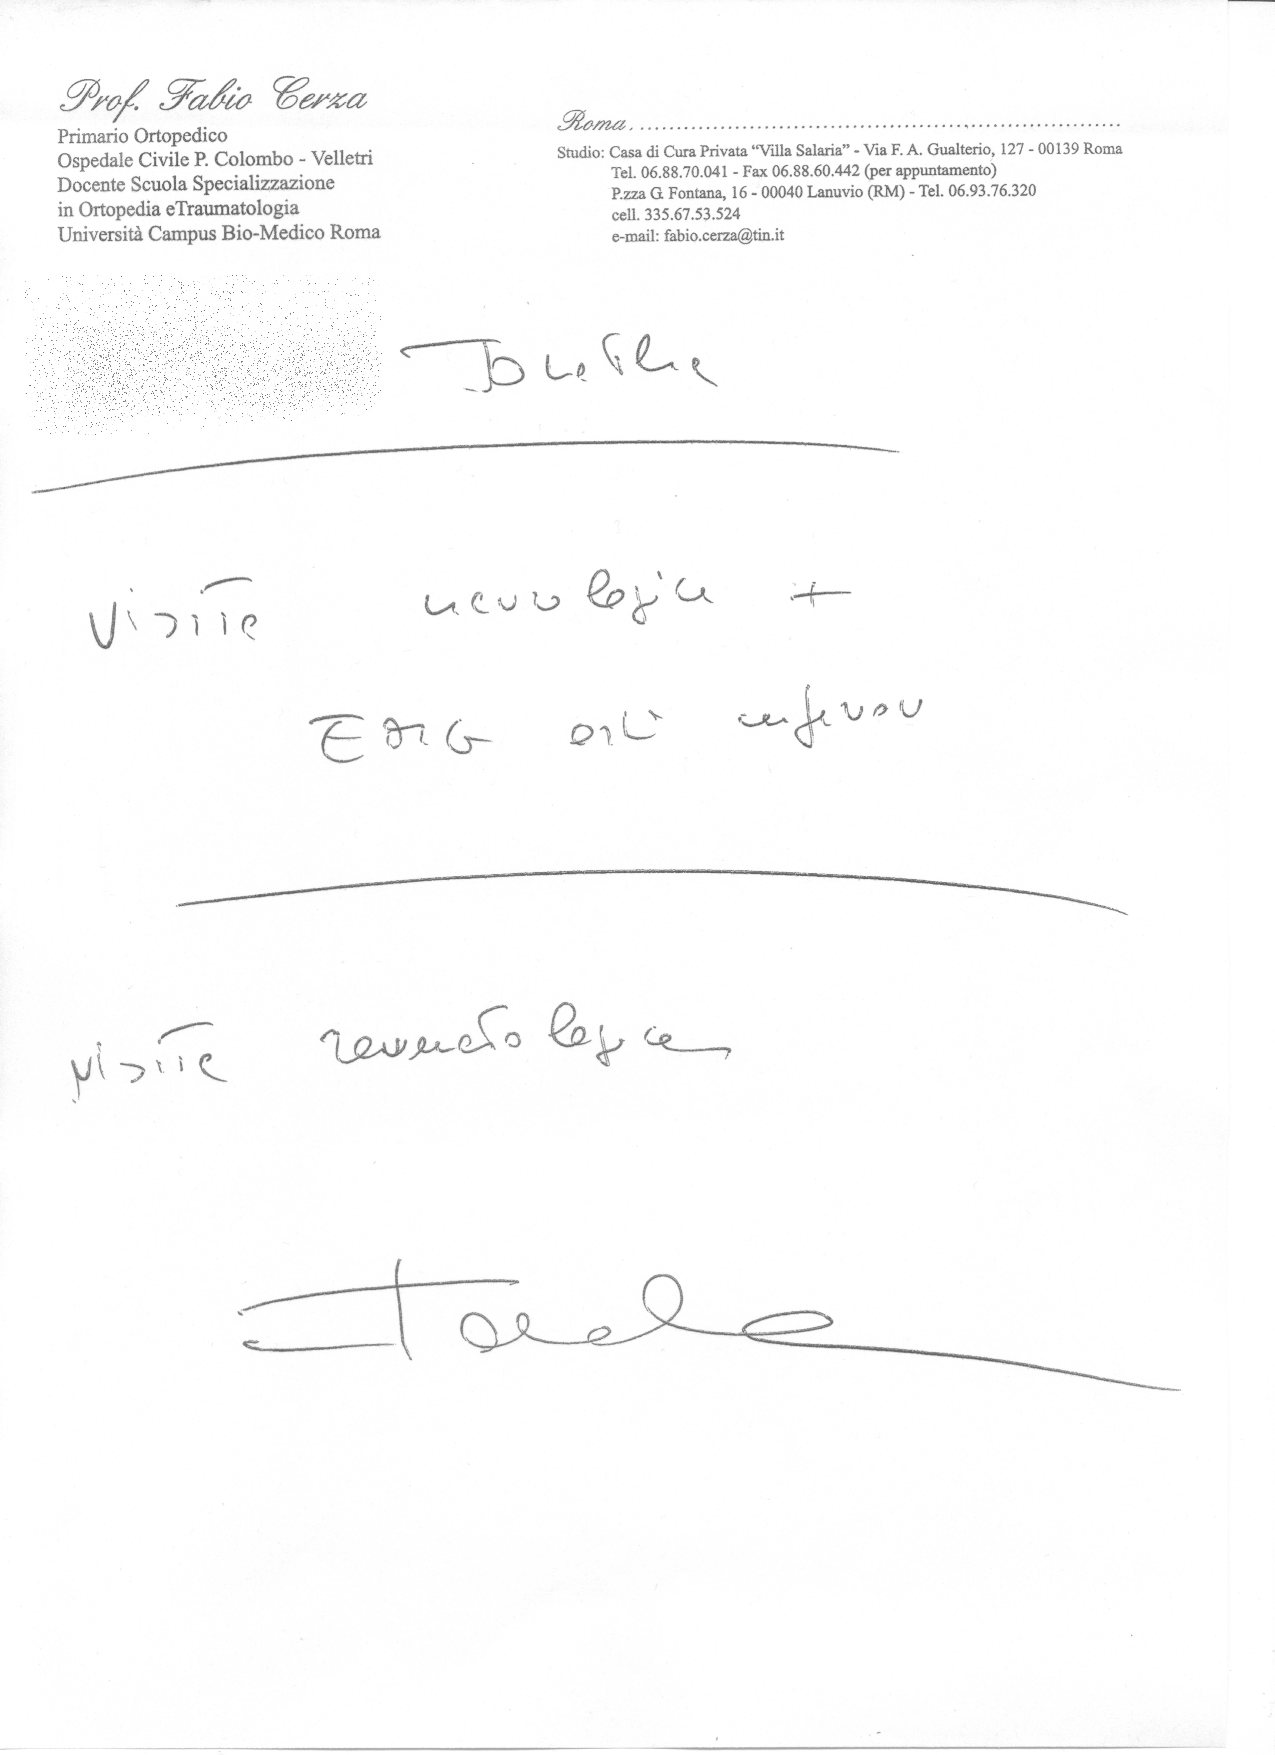 Prof. Fabio Cerza
Primario Ortopedico
Ospedale Civile P. Colombo - Velletri
Docente Scuola Specializzazione
in Ortopedia eTraumatologia
Università Campus Bio-Medico Roma
Roma, ............................................................
Studio: Casa di Cura Privata "Villa Salaria" - Via F. A. Gualterio, 127 - 00139 Roma
Tel. 06.88.70.041 - Fax 06.88.60.442 (per appuntamento)
P.zza G. Fontana, 16 - 00040 Lanuvio (RM) - Tel. 06.93.76.320
cell. 335.67.53.524
e-mail: fabio.cerza@tin.it
visita neurologica +
EMG arti inferiori
visita reumatologica